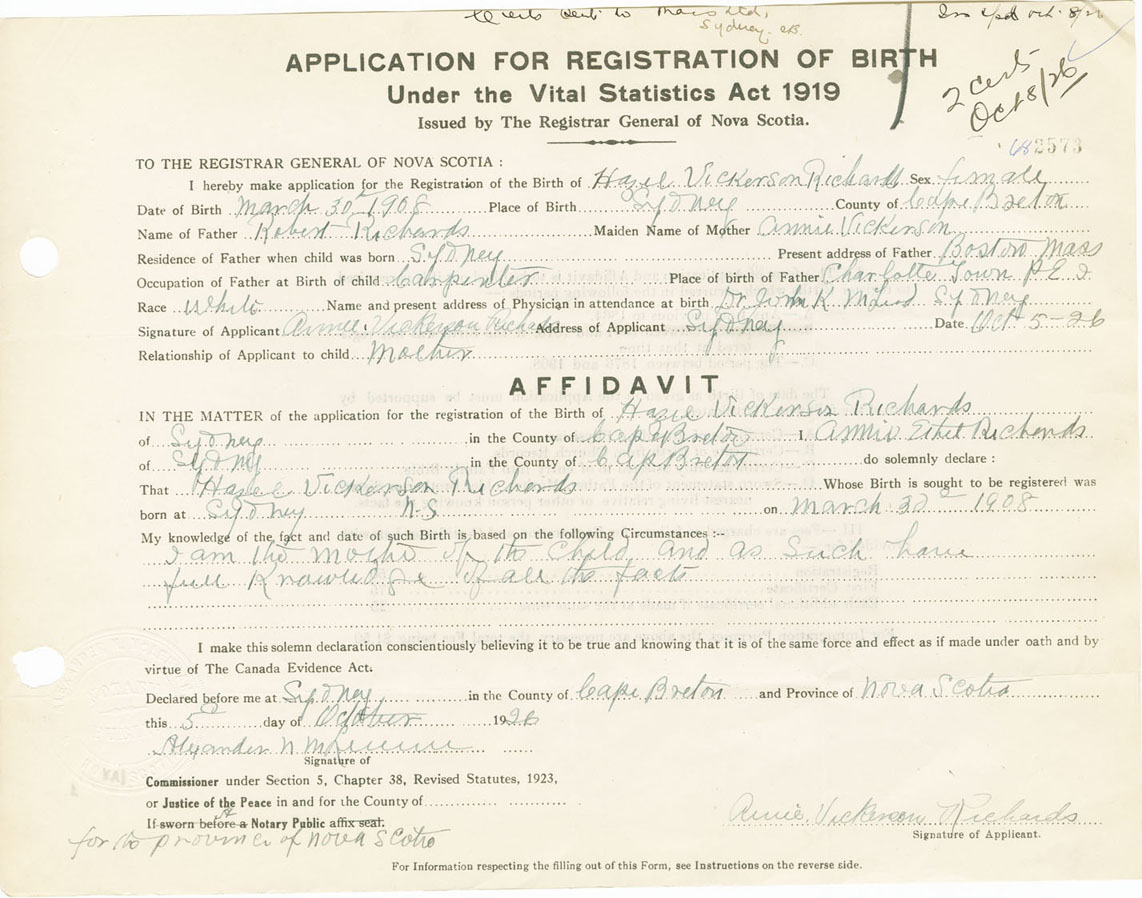 certs sent to
Sydney. C.B.
Oct. 8/26
APPLICATION FOR REGISTRATION OF BIRTH
Under the Vital Statistics Act 1919
Issued by The Registrar General of Nova Scotia.
2 certs
Oct 8/26
682573
TO THE REGISTRAR GENERAL OF NOVA SCOTIA :
I hereby make application for the Registration of the Birth of Hazel Vickerson Richards Sex female
Date of Birth March 30th 1908 Place of Birth Sydney County of Cape Breton
Name of Father Robert Richards Maiden Name of Mother Annie Vickerson
Residence of Father when child was born Sydney Present address of Father Boston Mass
Occupation of Father at Birth of child Carpenter Place of birth of Father Charlotte Town P.E.I
Race White Name and present address of Physician in attendance at birth Dr. John K McLeod Sydney
Signature of Applicant Annie Vickerson Richards Address of Applicant Sydney Date Oct 5-26
Relationship of Applicant to child Mother
AFFIDAVIT
IN THE MATTER of the application for the registration of the Birth of Hazel Vickerson Richards
of Sydney in the County of Cape Breton I, Annie Ethel Richards
of Sydney in the County of Cape Breton do solemnly declare :
That Hazel Vickerson Richards Whose Birth is sought to be registered was
born at Sydney N.S on March 30th 1908
My knowledge of the fact and date of such Birth is based on the following Circumstances :-
I am the Mother of the Child and as such have
full knowledge of all the facts
I make this solemn declaration conscientiously believing it to be true and knowing that it is of the same force and effect as if made under oath and by
virtue of The Canada Evidence Act.
Declared before me at Sydney in the County of Cape Breton and Province of Nova Scotia
this 5th day of October 1926
Alexander N
Signature of
Commissioner under Section 5, Chapter 38, Revised Statutes, 1923,
or Justice of the Peace in and for the County of
If sworn before a Notary Public affix seal.
for the province of Nova Scotia
Annie Vickerson Richards
Signature of Applicant.
For Information respecting the filling out of this Form, see Instructions on the reverse side.